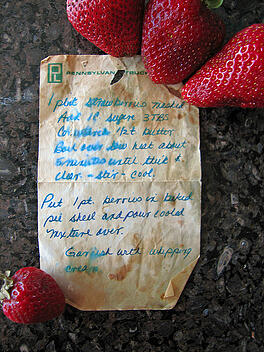 PENNSYLVANIA TRUCK
1 pint strawberries mashed
Add 1 C sugar 3 TBS
Cornstarch 1 pt butter
Boil over low heat about
5 minutes until thick &
clear - stir - cool.
Put 1 pt. berries in baked
pie shell and pour cooled
mixture over.
Garnish with whipping
cream